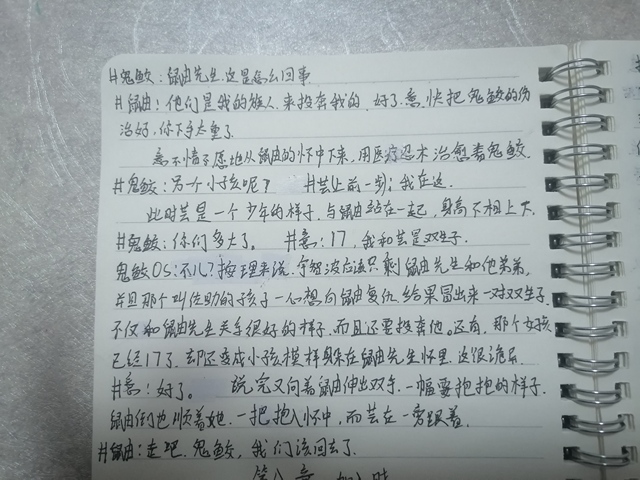 #鬼鲛：鼬先生.这是怎么回事
#鼬：他们是我的族人.来投奔我的.好了.意.快把鬼鲛的伤
治好，你下手太重了
意不情不愿地从鼬的怀中下来，用医疗忍术治愈着鬼鲛.
#鬼鲛：另一个小孩呢？ #芸上前一步：我在这.
此时芸是一个少年的样子.与鼬站在一起，身高不相上下.
#鬼鲛：你们多大了。 #意：17，我和芸是双生子.
鬼鲛OS：不儿？按理来说.宇智波应该只剩鼬先生和他弟弟，
并且那个叫佐助的孩子一心想向鼬复仇.结果冒出来一对双生子.
不仅和鼬先生关系很好的样子.而且还要投奔他。还有.那个女孩
已经17了.却还变成小孩模样身躲在鼬先生怀里.这很诡异
#意：好了。 说完又向着鼬伸出双手.一幅要抱抱的样子.
鼬倒也顺着她.一把抱入怀中，而芸在一旁跟着.
#鼬：走吧.鬼鲛，我们该回去了.